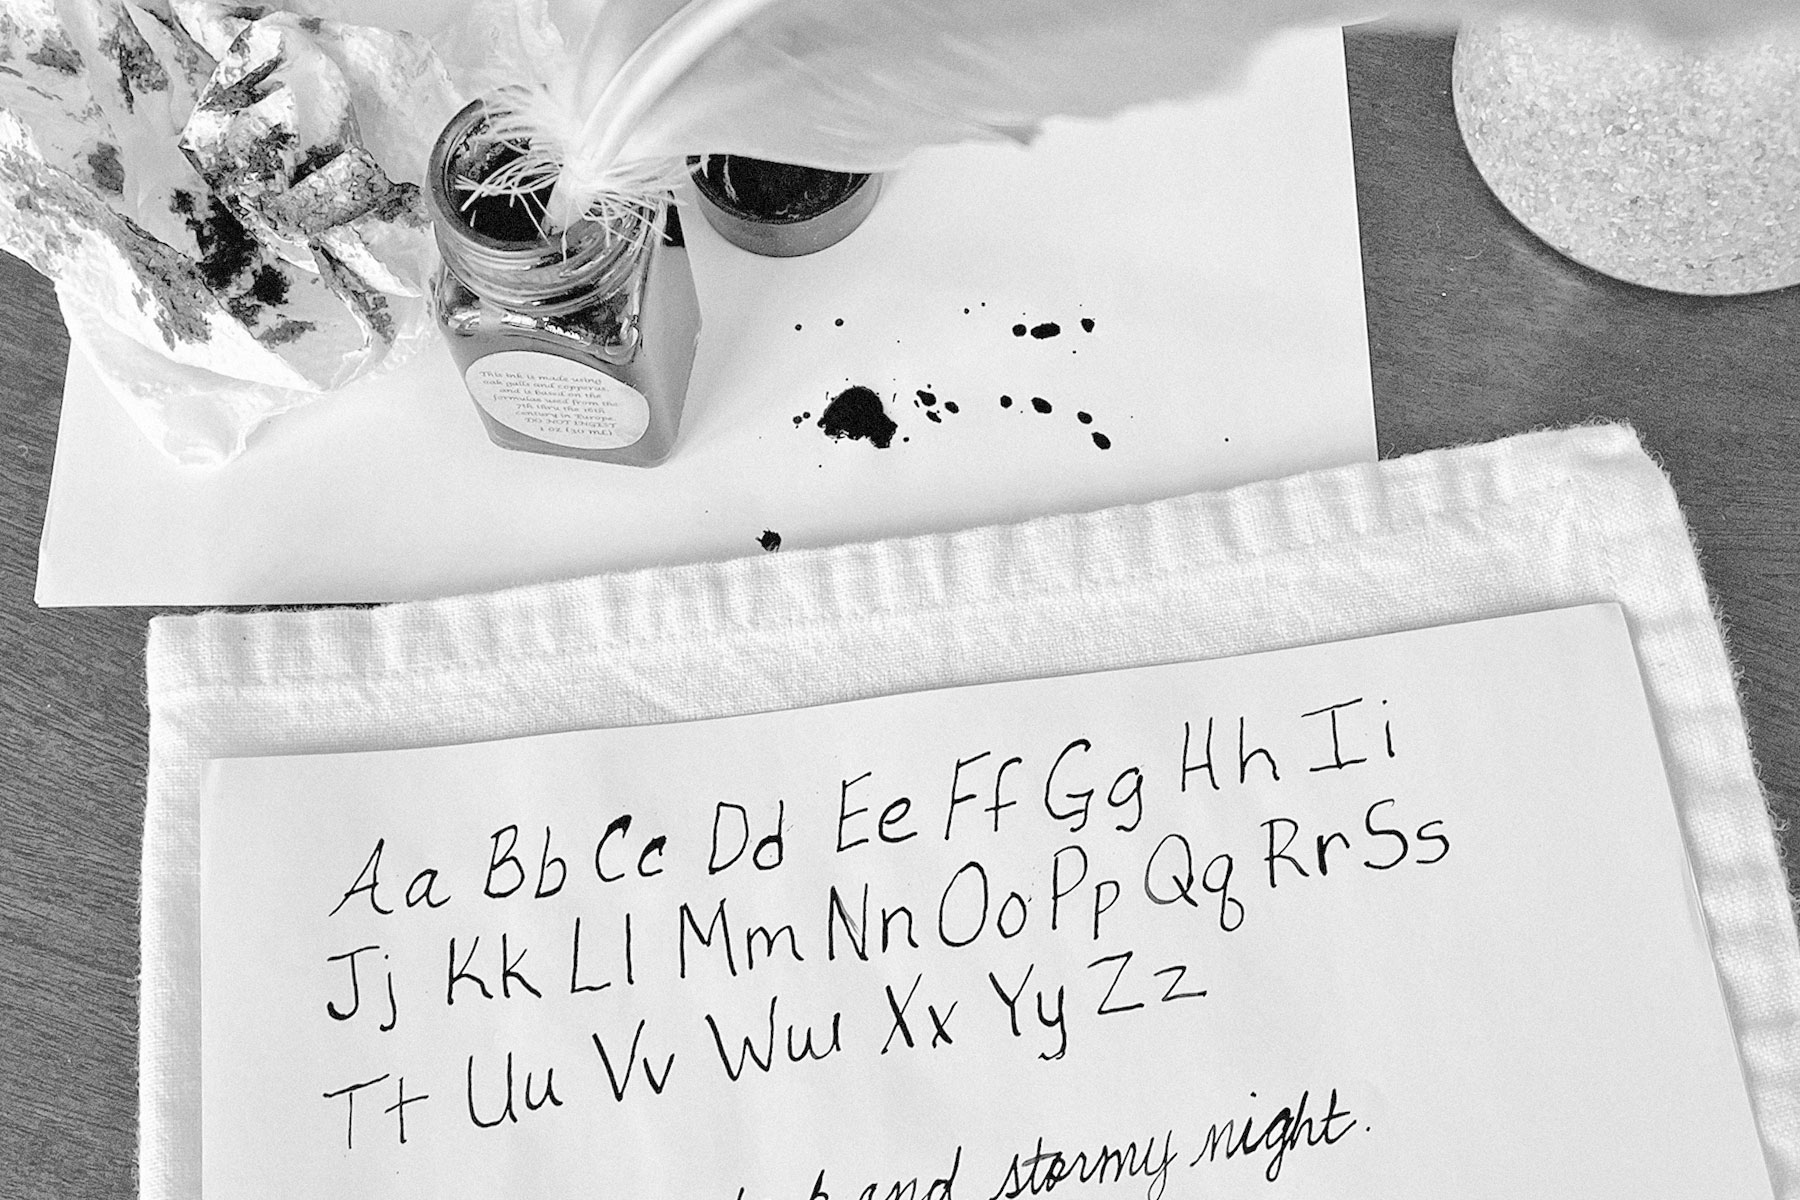 This ink is made using
oak galls and copperas,
and is based on the
formulas used from the
7th thru the 16th
century in Europe.
DO NOT INGEST
1 oz (30 mL)
Aa Bb Cc Dd Ee Ff Gg Hh Ii
Jj Kk Ll Mm Nn Oo Pp Qq Rr Ss
Tt Uu Vv Ww Xx Yy Zz
and stormy night.